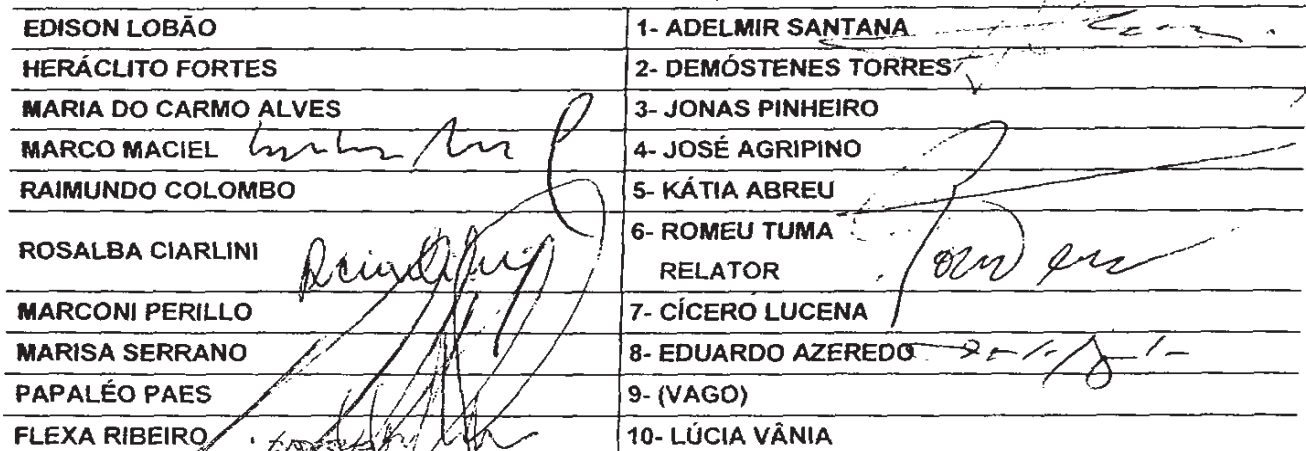 EDISON LOBÃO 1- ADELMIR SANTANA
HERÁCLITO FORTES 2- DEMÓSTENES TORRES
MARIA DO CARMO ALVES 3- JONAS PINHEIRO
MARCO MACIEL 4- JOSÉ AGRIPINO
RAIMUNDO COLOMBO 5- KÁTIA ABREU
ROSALBA CIARLINI 6- ROMEU TUMA
RELATOR
MARCONI PERILLO 7- CÍCERO LUCENA
MARISA SERRANO 8- EDUARDO AZEREDO
PAPALÉO PAES 9- (VAGO)
FLEXA RIBEIRO 10- LÚCIA VÂNIA